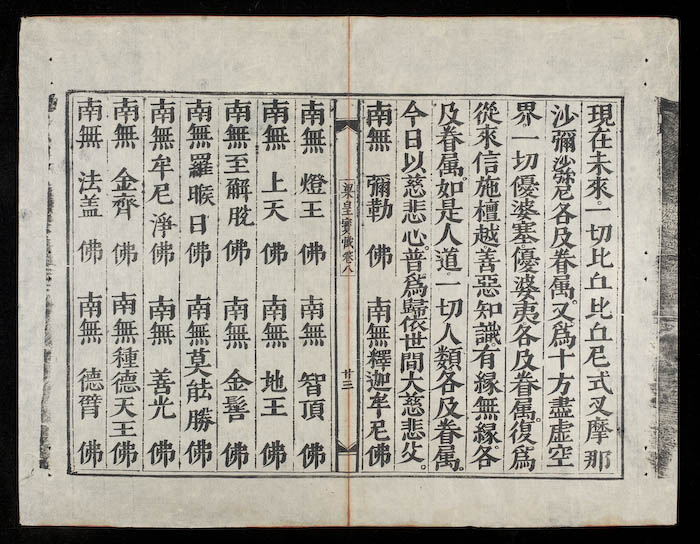 現在未來。一切比丘比丘尼式叉摩那
沙彌沙弥尼各及眷屬。又爲十方盡虛空
界一切優婆塞優婆夷各及眷屬。復爲
從來信施檀越善惡知識。有緣無緣。各
及眷屬。如是人道一切人類各及眷屬。
今日以慈悲心。普爲歸依世間大慈悲父。
南無彌勒佛 南無釋迦牟尼佛
梁皇寶懺卷八 廿三
南無燈王佛 南無智頂佛
南無上天佛 南無地王佛
南無至解脫佛 南無金髻佛
南無羅睺日佛 南無莫能勝佛
南無牟尼淨佛 南無善光佛
南無金齊佛 南無種德天王佛
南無法蓋佛 南無德臂佛